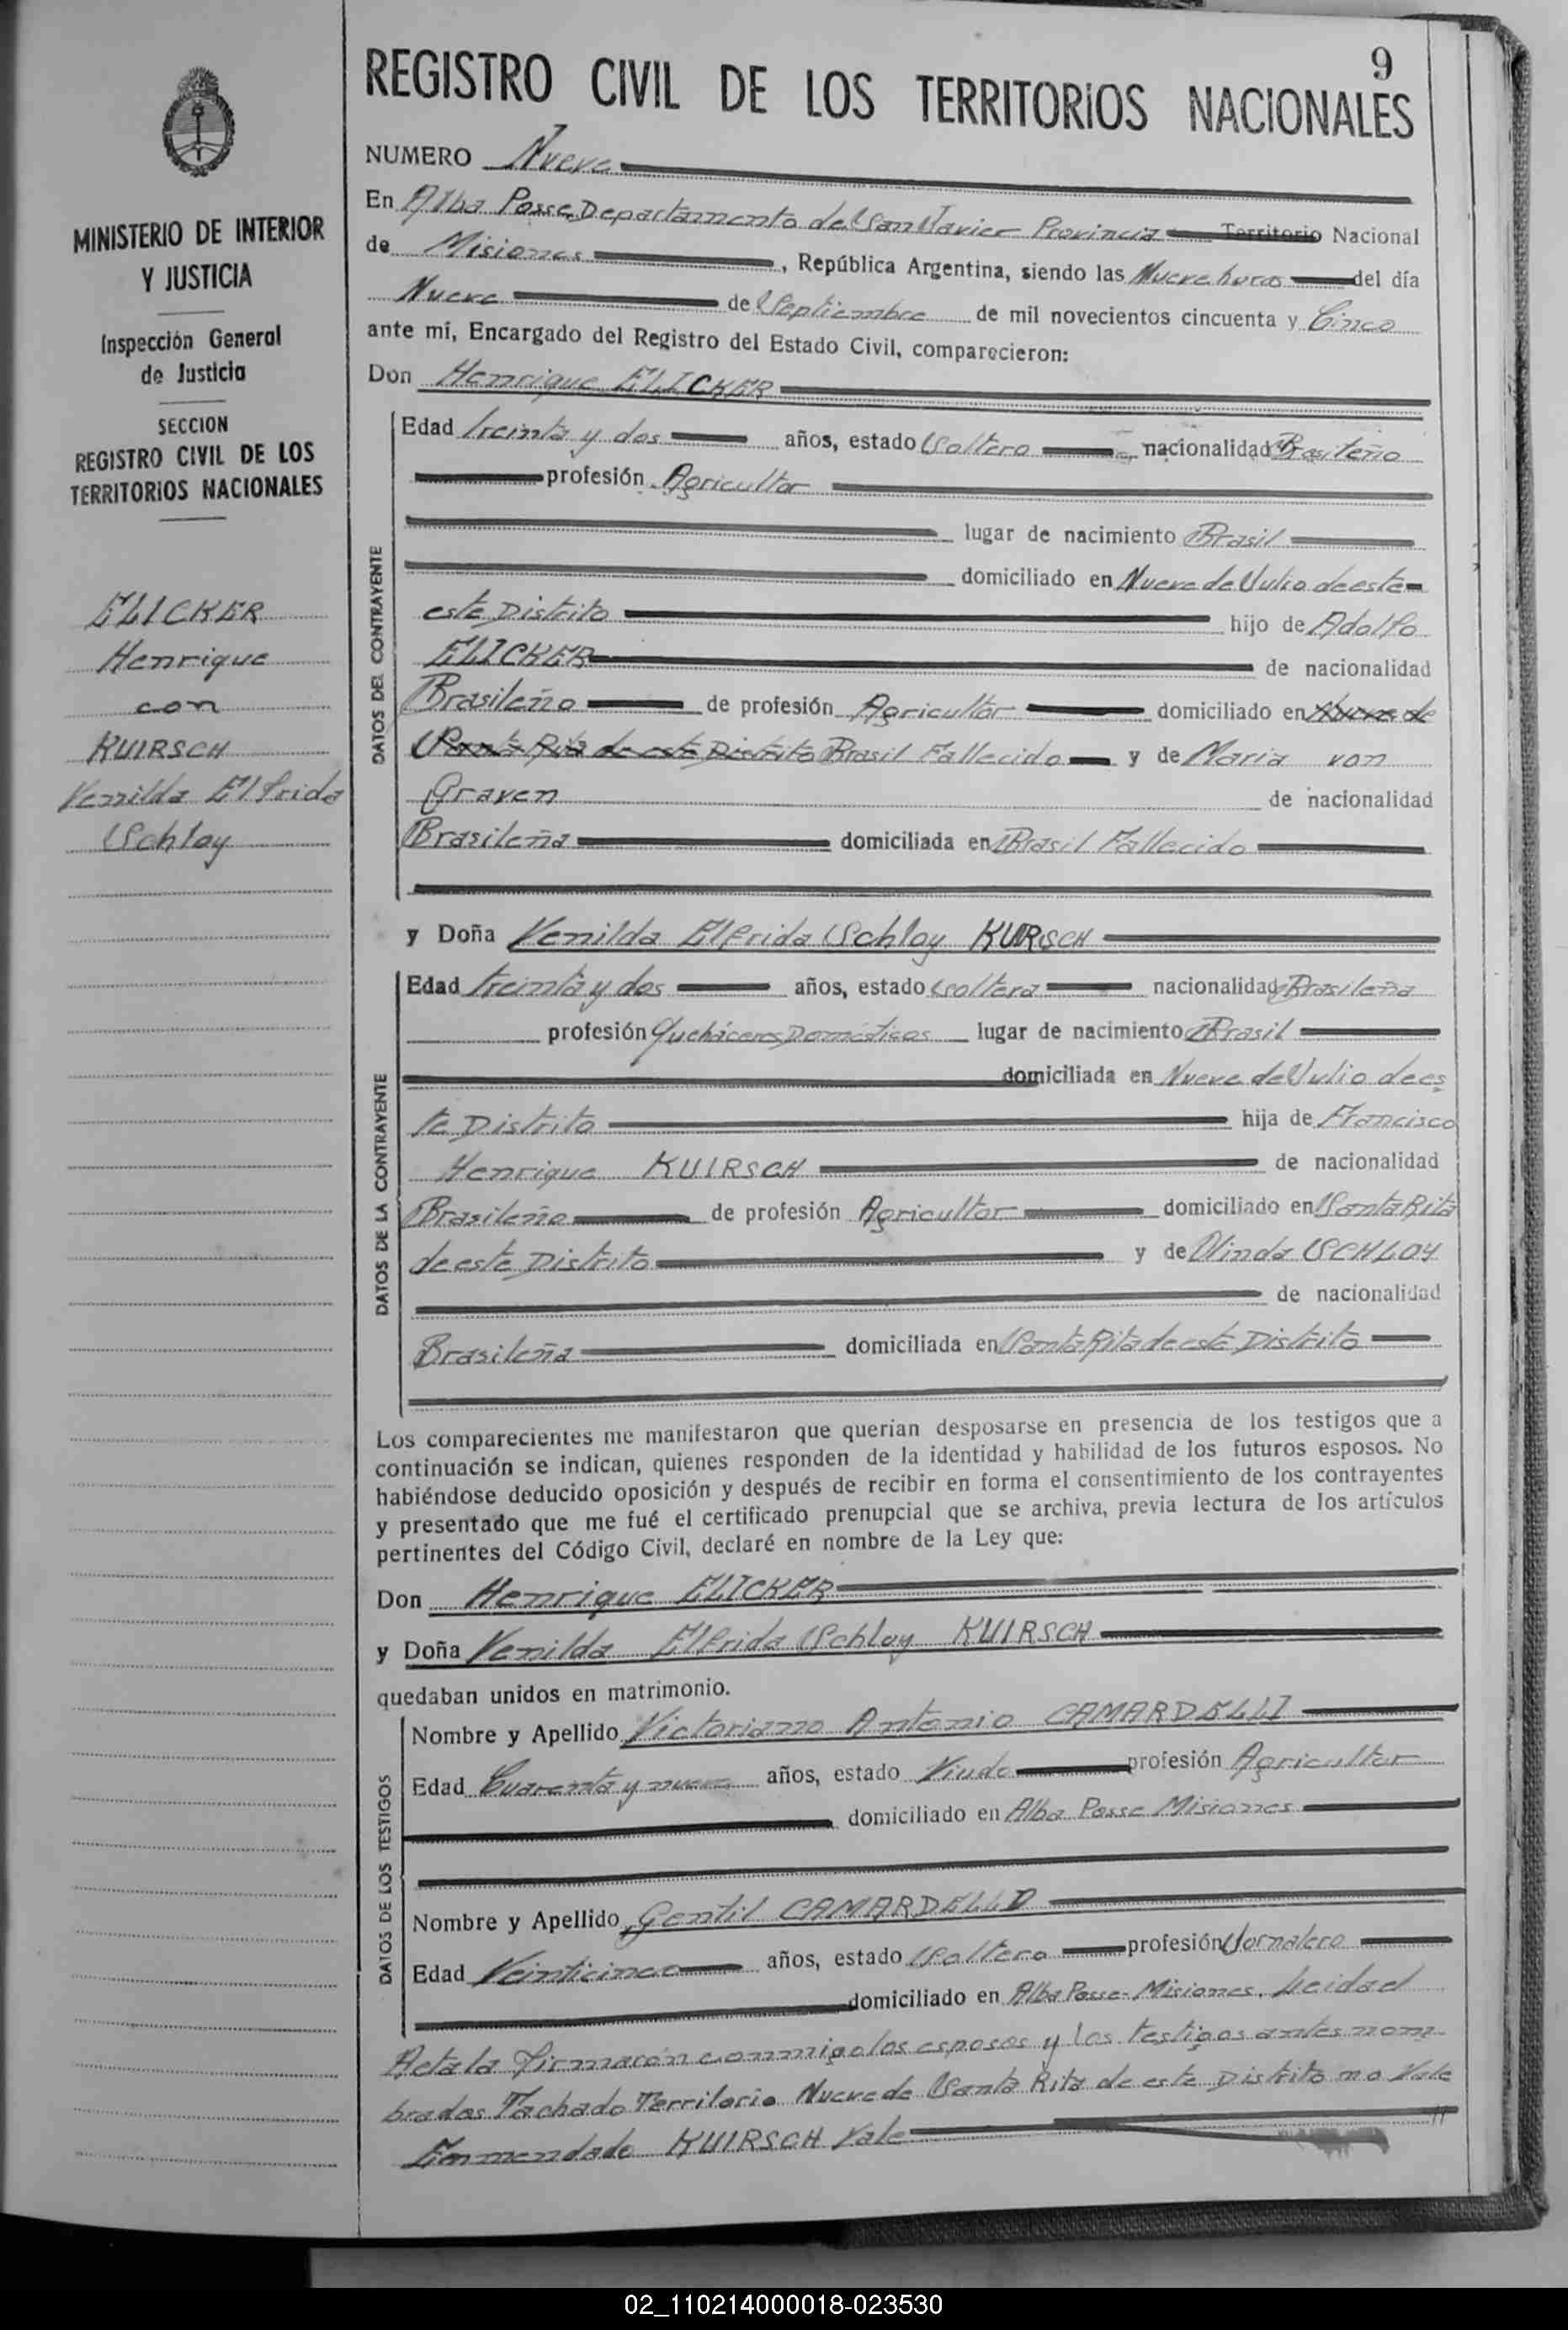 9
REGISTRO CIVIL DE LOS TERRITORIOS NACIONALES
MINISTERIO DE INTERIOR
Y JUSTICIA
Inspección General
de Justicia
SECCION
REGISTRO CIVIL DE LOS
TERRITORIOS NACIONALES
ELICKER
Henrique
con
KUIRSCH
Venilda Elfrida
Schloy
NUMERO Nueve
En Alba Posse Departamento de San Javier Provincia Territorio Nacional
de Misiones, República Argentina, siendo las Nueve horas del día
Nueve de Septiembre de mil novecientos cincuenta y Cinco
ante mí, Encargado del Registro del Estado Civil, comparecieron:
Don Henrique ELICKER
DATOS DEL CONTRAYENTE
Edad treinta y dos años, estado Soltero nacionalidad Brasileño
profesión Agricultor
lugar de nacimiento Brasil
domiciliado en Nueve de Julio de este
este Distrito hijo de Adolfo
ELICKER de nacionalidad
Brasileño de profesión Agricultor domiciliado en Nueve de
Santa Rita de este Distrito Brasil Fallecido y de Maria von
Graven de nacionalidad
Brasileña domiciliada en Brasil Fallecido
y Doña Venilda Elfrida Schloy KUIRSCH
DATOS DE LA CONTRAYENTE
Edad treinta y dos años, estado soltera nacionalidad Brasileña
profesión Quehaceres Domésticos lugar de nacimiento Brasil
domiciliada en Nueve de Julio de es
te Distrito hija de Francisco
Henrique KUIRSCH de nacionalidad
Brasileño de profesión Agricultor domiciliado en Santa Rita
de este Distrito y de Olinda SCHLOY
de nacionalidad
Brasileña domiciliada en Santa Rita de este Distrito
Los comparecientes me manifestaron que querían desposarse en presencia de los testigos que a
continuación se indican, quienes responden de la identidad y habilidad de los futuros esposos. No
habiéndose deducido oposición y después de recibir en forma el consentimiento de los contrayentes
y presentado que me fué el certificado prenupcial que se archiva, previa lectura de los artículos
pertinentes del Código Civil, declaré en nombre de la Ley que:
Don Henrique ELICKER
y Doña Venilda Elfrida Schloy KUIRSCH
quedaban unidos en matrimonio.
DATOS DE LOS TESTIGOS
Nombre y Apellido Victoriano Antonio CAMARDELLI
Edad Cuarenta y nueve años, estado Viudo profesión Agricultor
domiciliado en Alba Posse Misiones
Nombre y Apellido Gentil CAMARDELLO
Edad Veinticinco años, estado Soltero profesión Jornalero
domiciliado en Alba Posse-Misiones. Leida el
Acta la firmarón conmigo los esposos y los testigos antes nom-
brados Tachado Territorio Nueve de Santa Rita de este Distrito no Vale
Enmendado KUIRSCH Vale
02_110214000018-023530